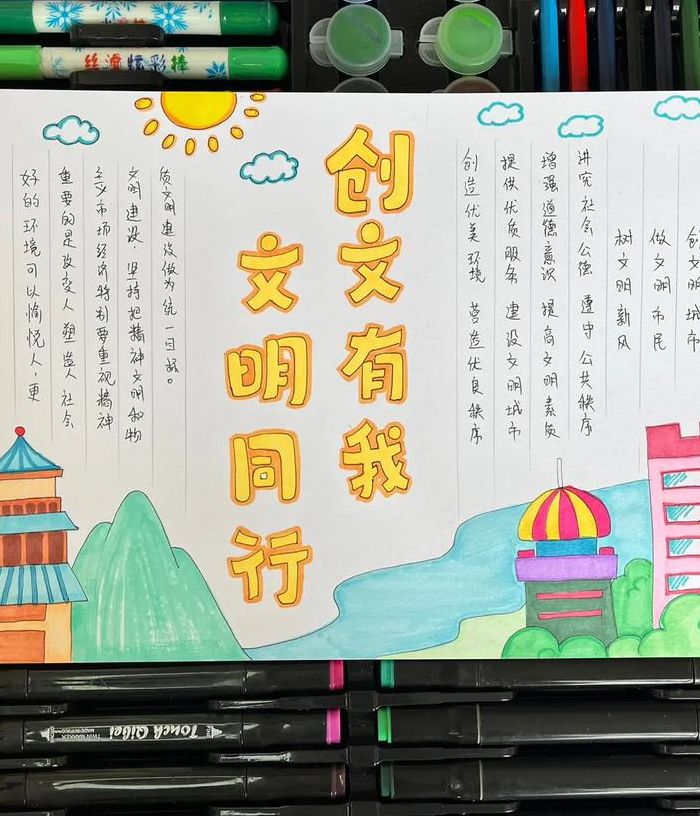 丝滑炫彩棒
好的环境可以愉悦人,更
重要的是改变人 塑造人 社会
主义市场经济特别要重视精神
文明建设.坚持把精神文明和物
质文明建设做为统一目标。
创文有我
文明同行
创造优美环境 营造优良秩序
提供优质服务 建设文明城市
增强道德意识 提高文明素质
讲究社会公德 遵守公共秩序
树文明新风
做文明市民
创文明城市
Touch Qibei
TWIN MARKER